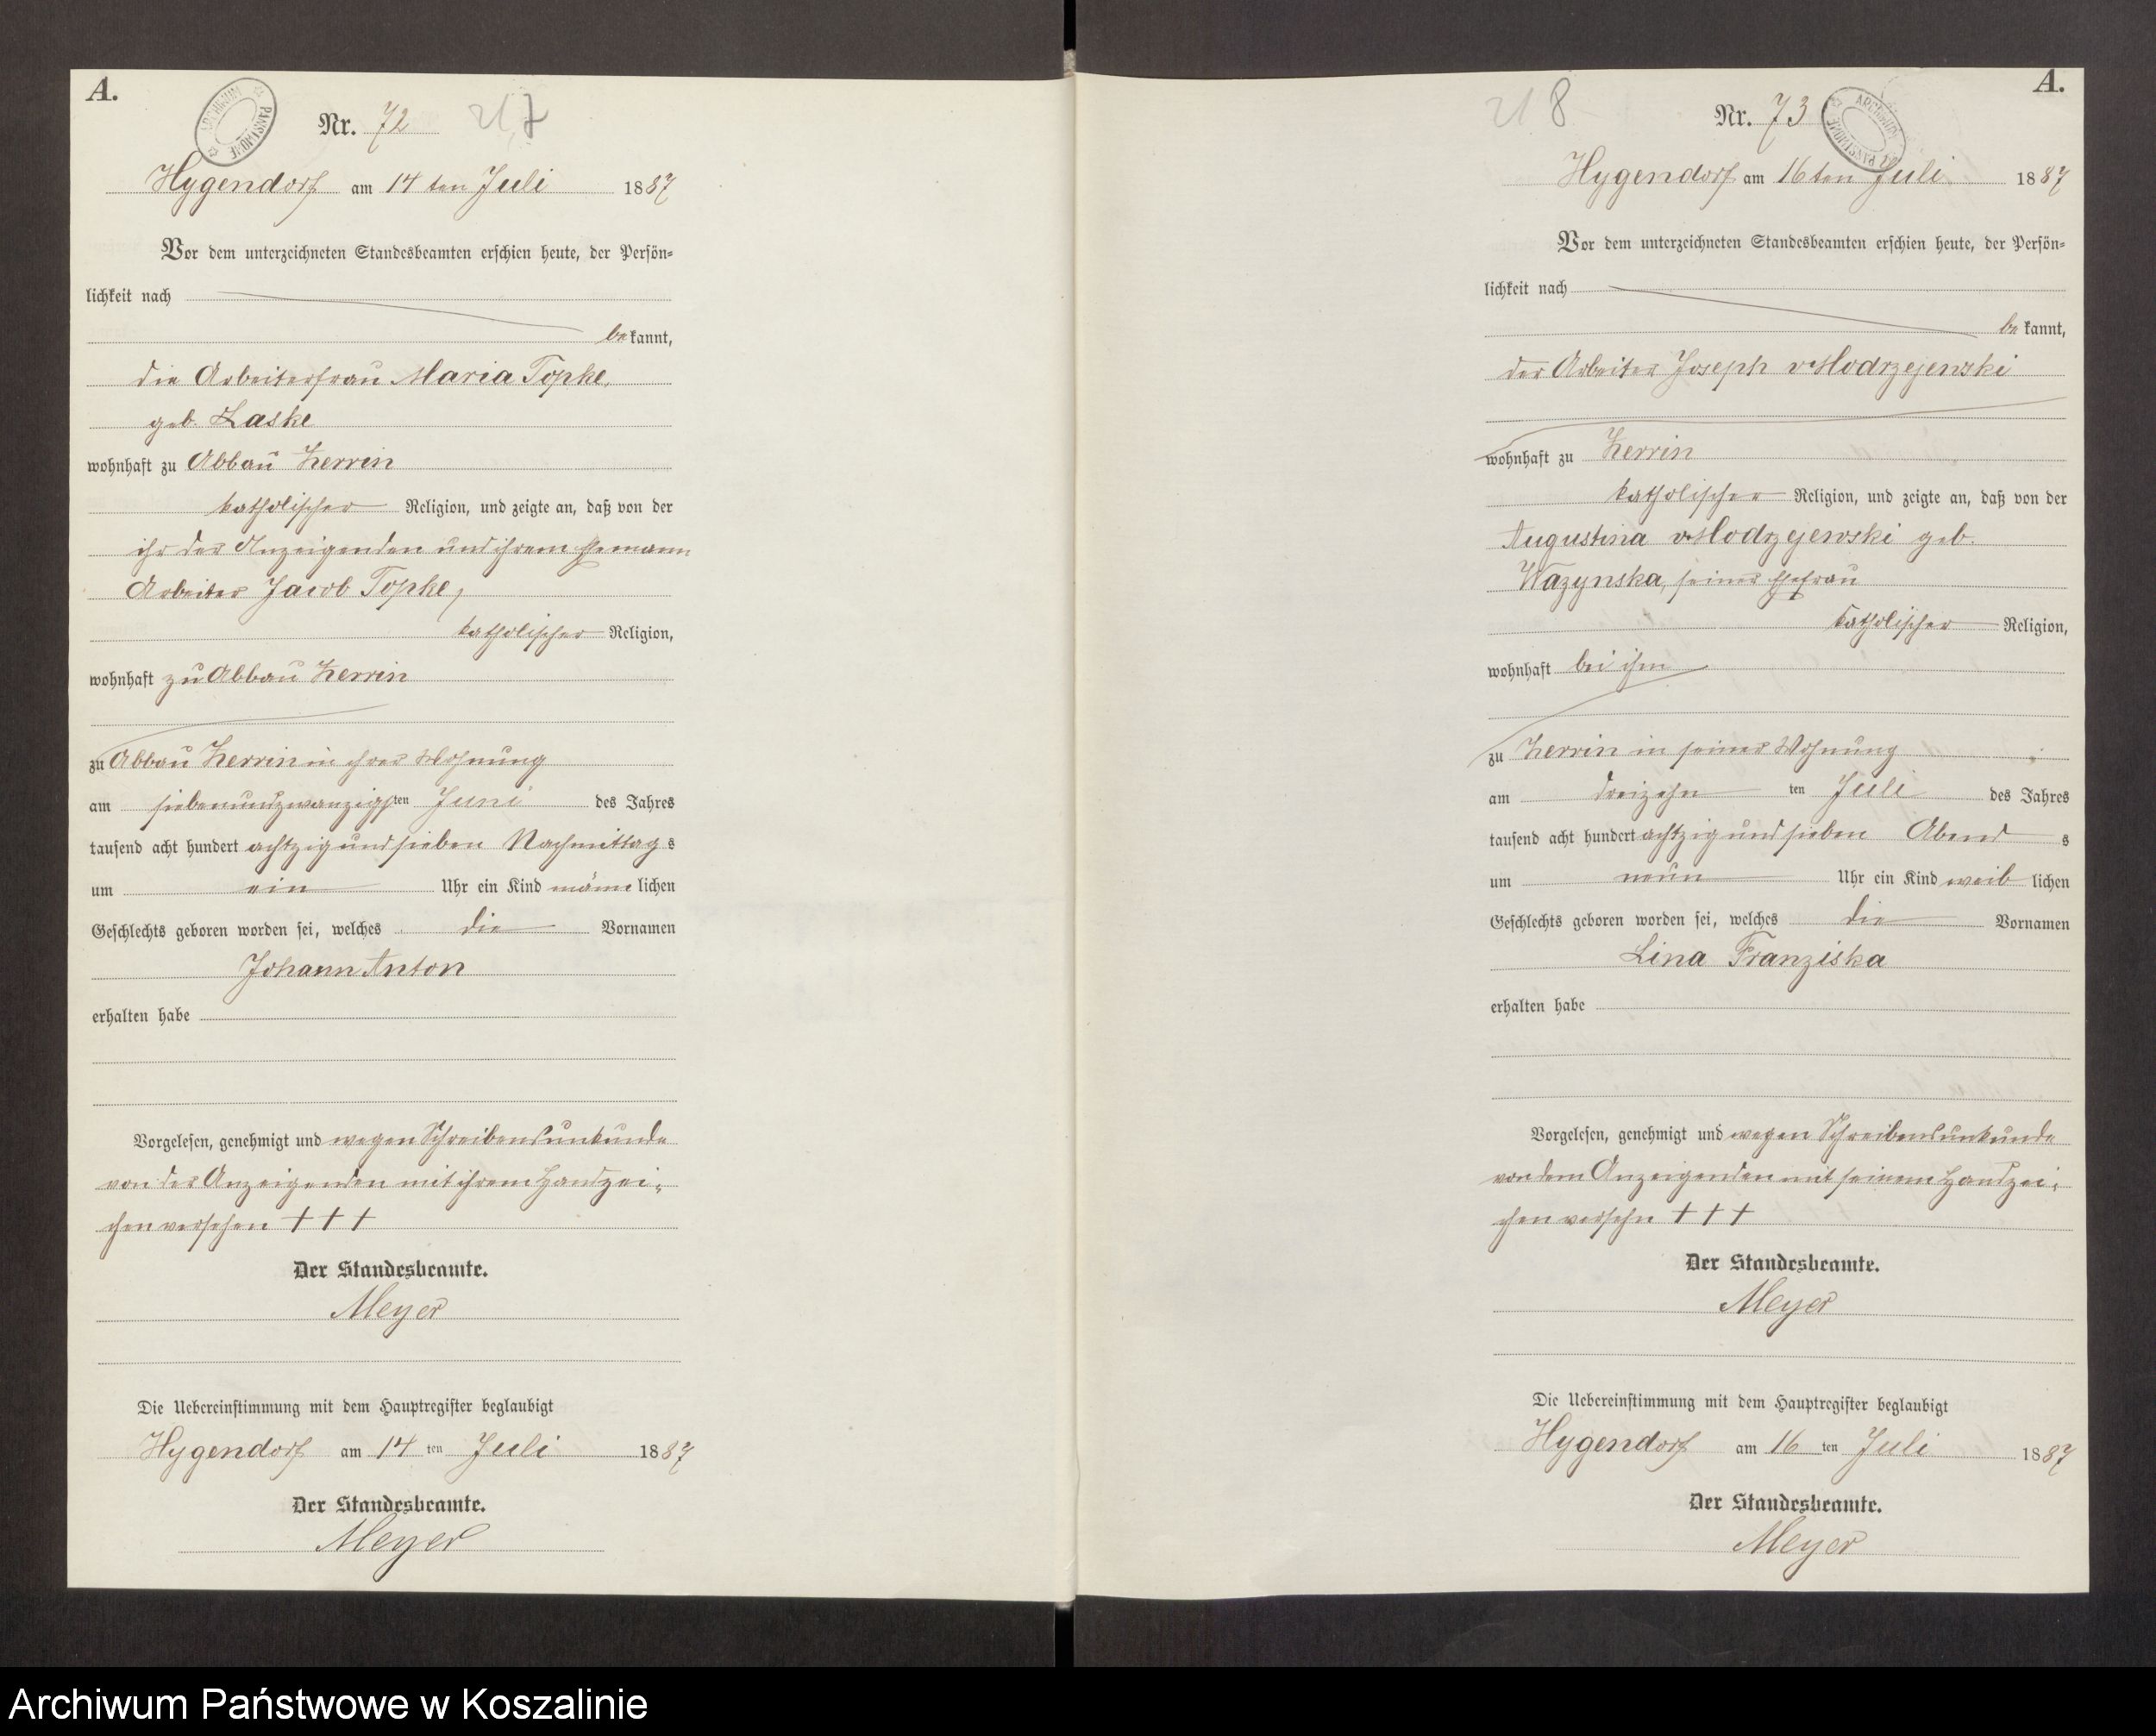 A.
Nr. 72
217
Hygendorf am 14 ten Juli 1887
Vor dem unterzeichneten Standesbeamten erschien heute, der Persön-
lichkeit nach
bekannt,
die Arbeiterfrau Maria Topke,
geb. Laske
wohnhaft zu Abbau Zerrin
katholischer Religion, und zeigte an, daß von der
ihr der Anzeigenden und ihrem Ehemann
Arbeiter Jacob Topke,
katholischer Religion,
wohnhaft zu Abbau Zerrin
zu Abbau Zerrin in ihrer Wohnung
am siebenundzwanzigsten Juni des Jahres
tausend acht hundert achtzig und sieben Nachmittags
um ein Uhr ein Kind männlichen
Geschlechts geboren worden sei, welches die Vornamen
Johann Anton
erhalten habe
Vorgelesen, genehmigt und wegen Schreibensunkunde
von der Anzeigenden mit ihrem Handzei-
chen versehen + + +
Der Standesbeamte.
Meyer
Die Uebereinstimmung mit dem Hauptregister beglaubigt
Hygendorf am 14 ten Juli 1887
Der Standesbeamte.
Meyer
A.
218
Nr. 73
ARCHIWUM PAŃSTWOWE
Hygendorf am 16 ten Juli 1887
Vor dem unterzeichneten Standesbeamten erschien heute, der Persön-
lichkeit nach
bekannt,
der Arbeiter Joseph v Modrzejewski
wohnhaft zu Zerrin
katholischer Religion, und zeigte an, daß von der
Augustina v Modrzejewski geb.
Wazynska, seiner Ehefrau
katholischer Religion,
wohnhaft bei ihm
zu Zerrin in seiner Wohnung
am dreizehn ten Juli des Jahres
tausend acht hundert achtzig und sieben Abends
um neun Uhr ein Kind weiblichen
Geschlechts geboren worden sei, welches die Vornamen
Lina Franziska
erhalten habe
Vorgelesen, genehmigt und wegen Schreibensunkunde
von dem Anzeigenden mit seinem Handzei-
chen versehn + + +
Der Standesbeamte.
Meyer
Die Uebereinstimmung mit dem Hauptregister beglaubigt
Hygendorf am 16 ten Juli 1887
Der Standesbeamte.
Meyer
Archiwum Państwowe w Koszalinie